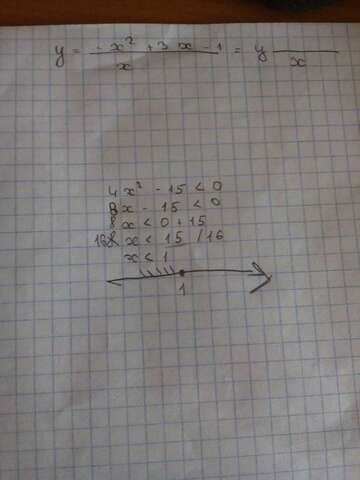 y = (-x² + 3x - 1)/x = y —/x
4x² - 15 < 0
8x - 15 < 0
8x < 0 + 15
16x < 15 / 16
x < 1
1